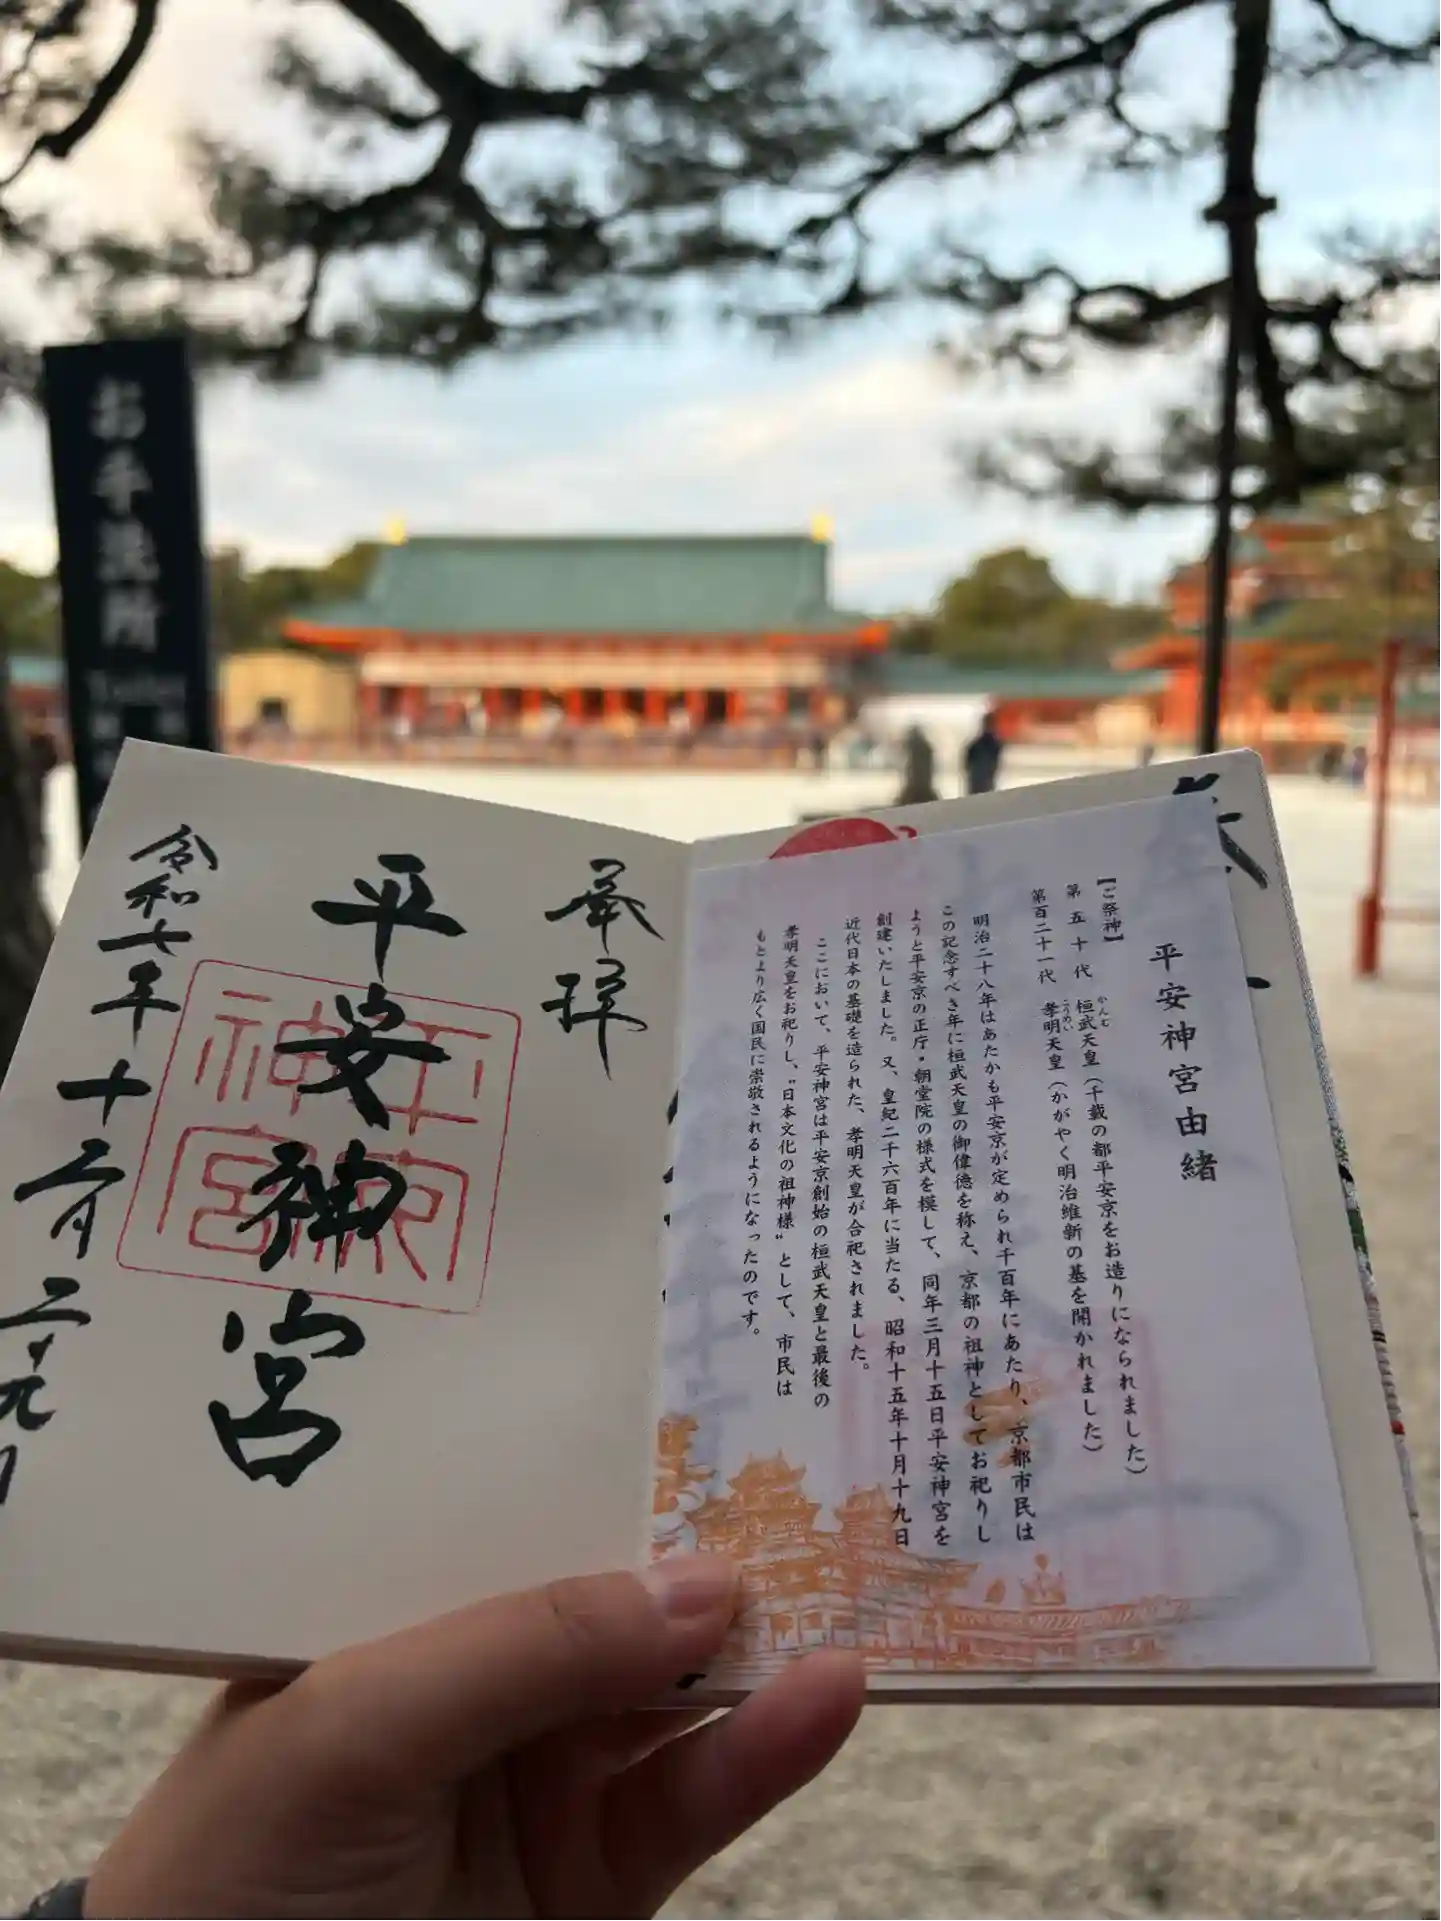 お手洗所
奉拝
平安神宮
令和七年十二月二十九日
平安神宮
平安神宮由緒
【ご祭神】
第五十代 桓武天皇（千載の都平安京をお造りになられました）
かんむ
第百二十一代 孝明天皇（かがやく明治維新の基を開かれました）
こうめい
明治二十八年はあたかも平安京が定められ千百年にあたり、京都市民は
この記念すべき年に桓武天皇の御偉徳を称え、京都の祖神としてお祀りし
ようと平安京の正庁・朝堂院の様式を模して、同年三月十五日平安神宮を
創建いたしました。又、皇紀二千六百年に当たる、昭和十五年十月十九日
近代日本の基礎を造られた、孝明天皇が合祀されました。
ここにおいて、平安神宮は平安京創始の桓武天皇と最後の
孝明天皇をお祀りし、〝日本文化の祖神様〟として、市民は
もとより広く国民に崇敬されるようになったのです。